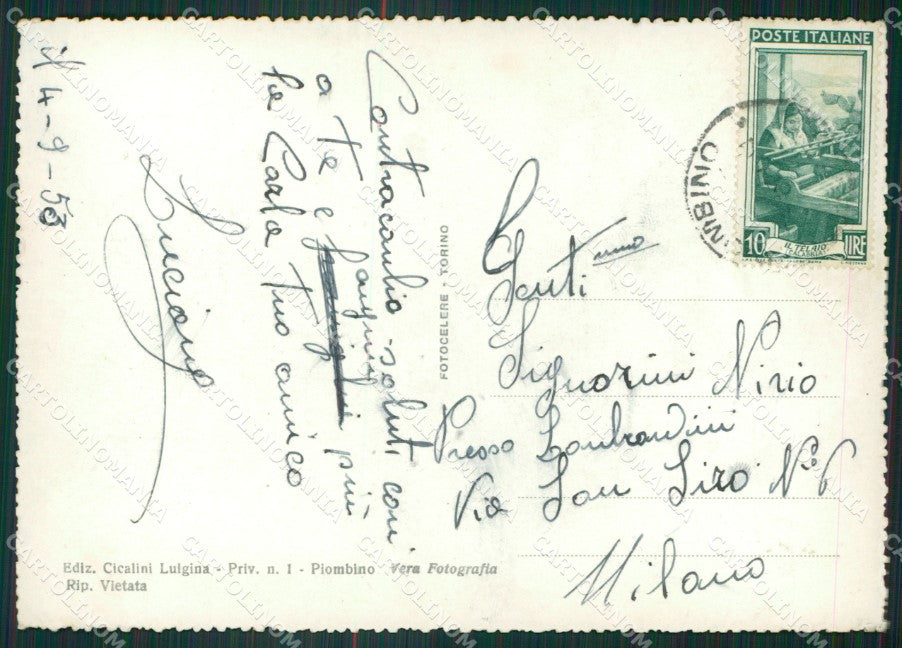 il 4-9-53
Contracambio saluti con
a te e famigl
più
te Carla tuo amico
Luciano
POSTE ITALIANE
10 LIRE
IL TELAIO
MBINO
Gent.imo
Signorini Nirio
Presso Lombardini
Via San Siro N° 6
Milano
FOTOCELERE - TORINO
Ediz. Cicalini Luigina - Priv. n. 1 - Piombino Vera Fotografia
Rip. Vietata
CARTOLINOMANIA